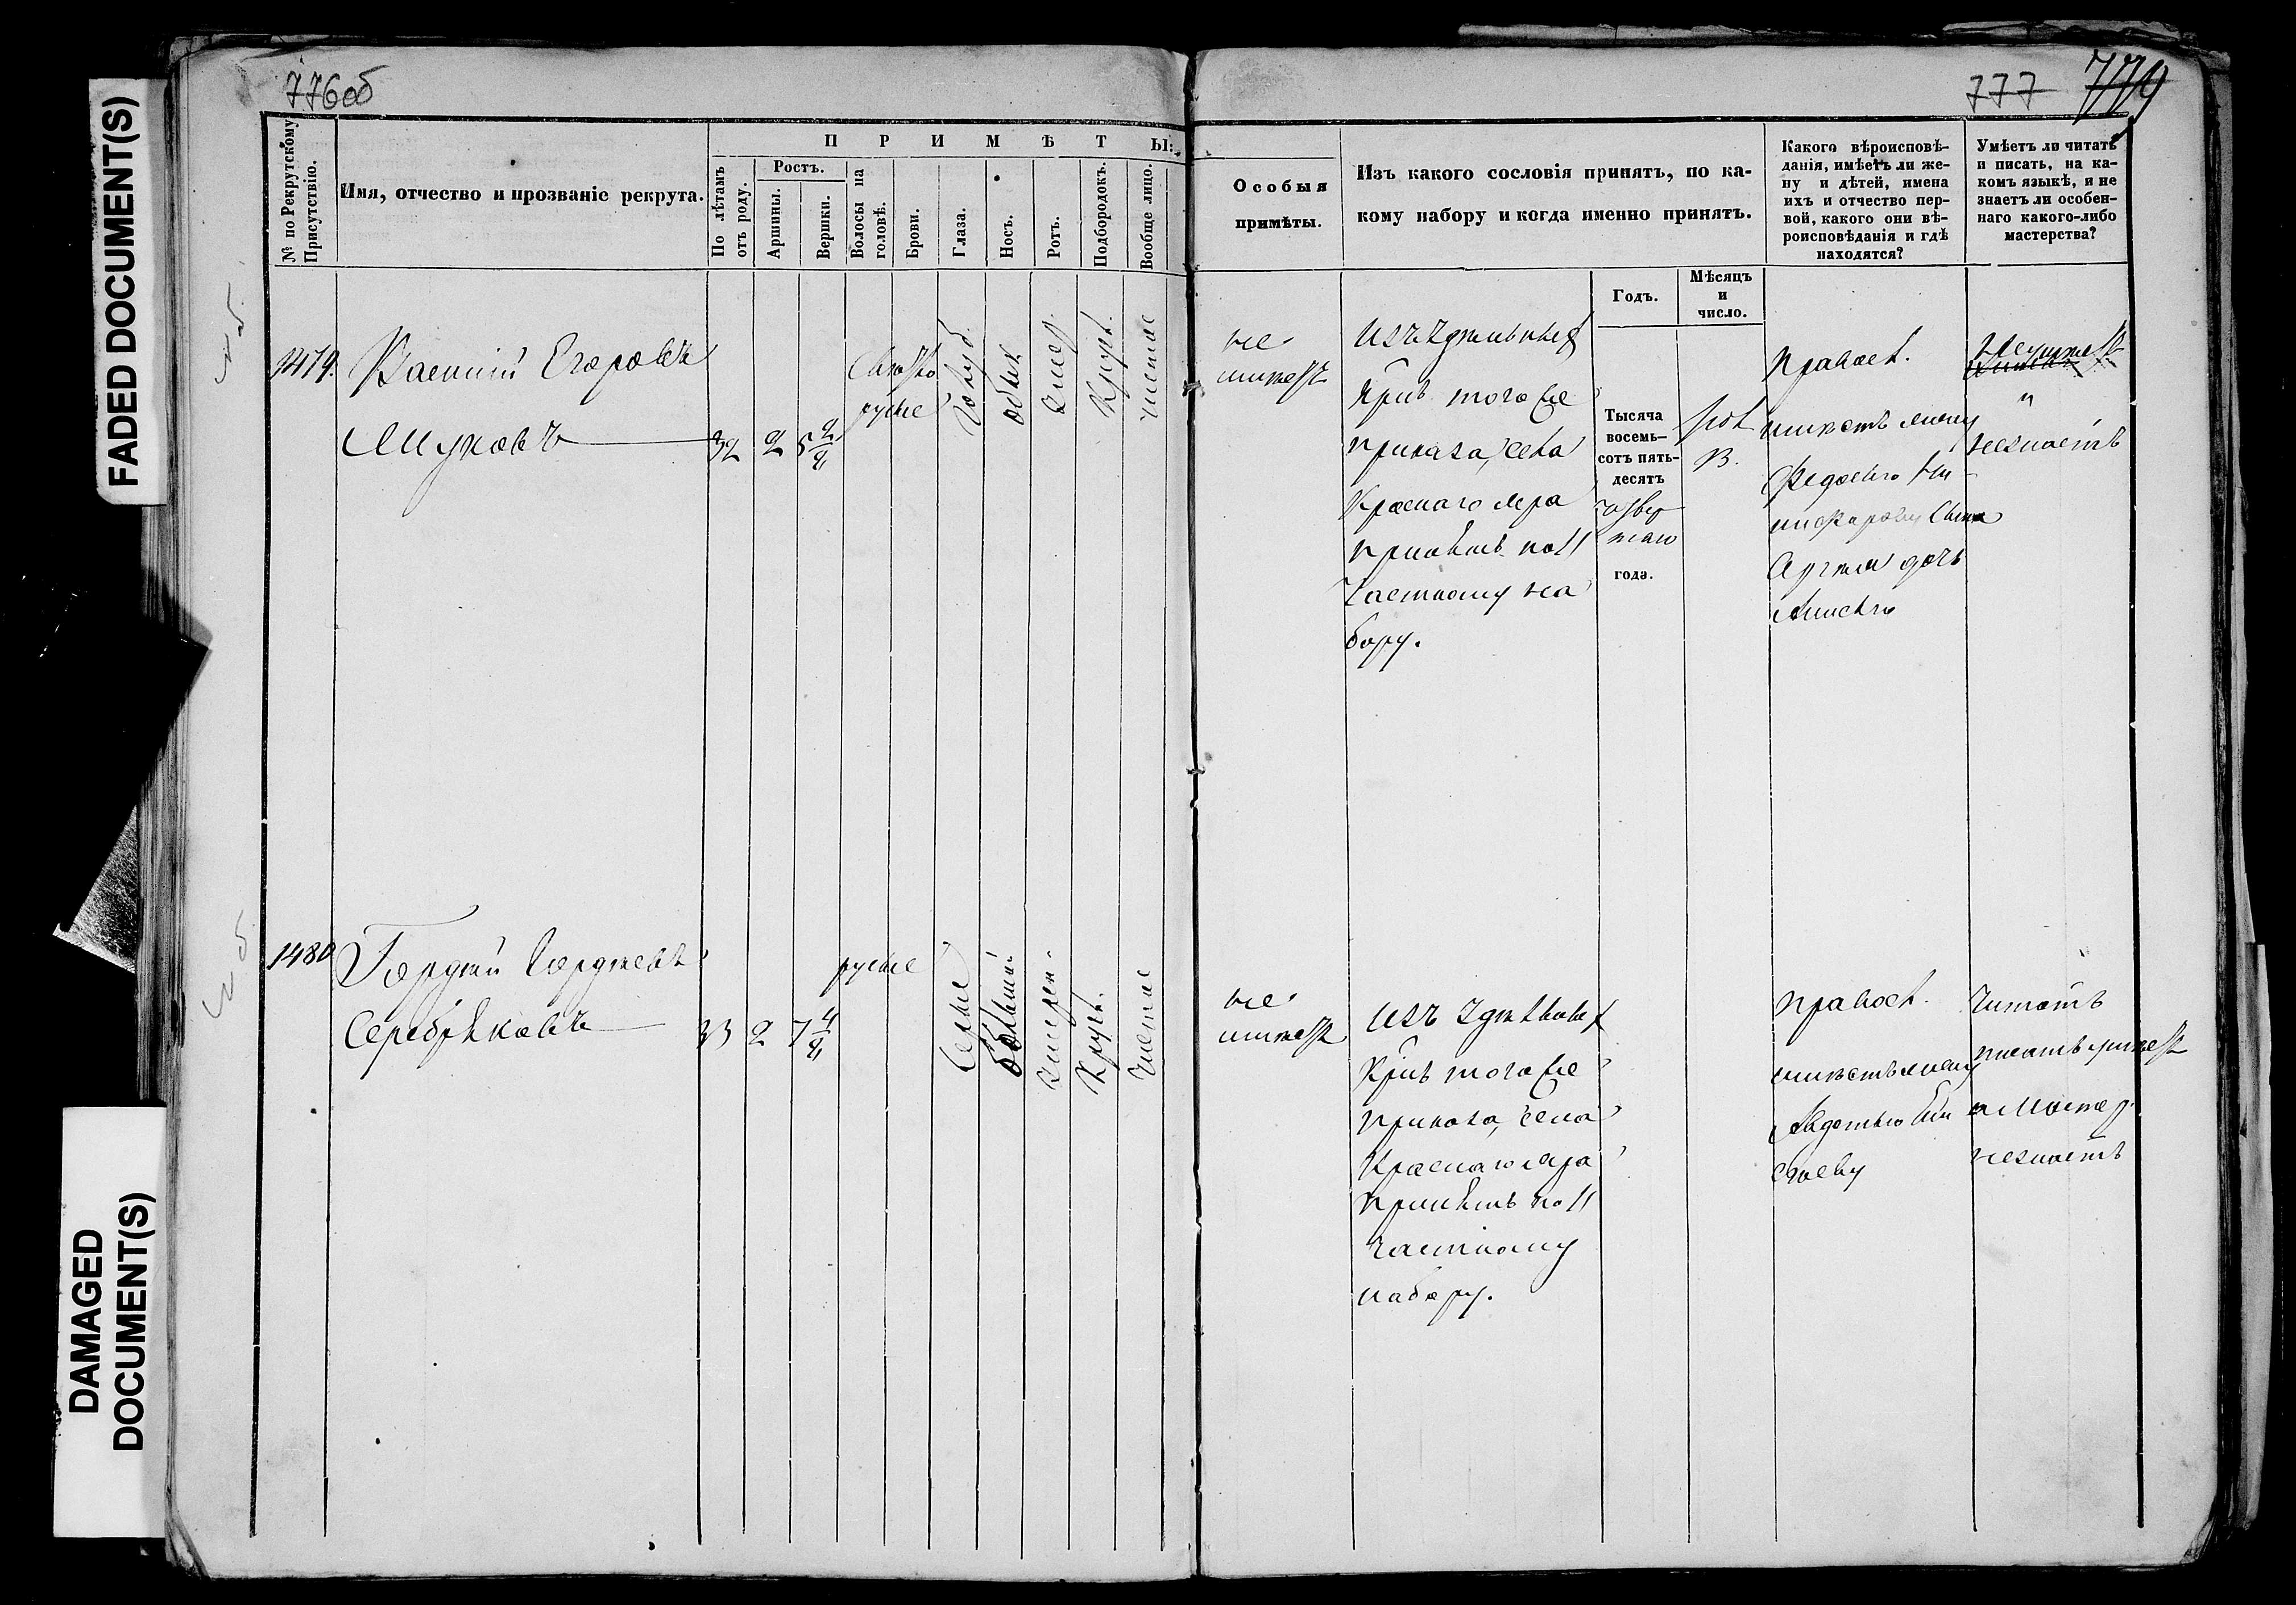 776об
777 779
FADED DOCUMENT(S)
DAMAGED
DOCUMENT(S)
№ по Рекрутскому
Присутствію.
Имя, отчество и прозваніе рекрута.
ПРИМѢТЫ:
По лѣтамъ
отъ роду.
Ростъ.
Аршины.
Вершки.
Волосы на
головѣ.
Брови.
Глаза.
Носъ.
Ротъ.
Подбородокъ.
Вообще лицо.
Особыя
примѣты.
Изъ какого сословія принятъ, по ка-
кому набору и когда именно принятъ.
Годъ.
Мѣсяцъ
и
число.
Какого вѣроисповѣ-
данія, имѣетъ ли же-
ну и дѣтей, имена
ихъ и отчество пер-
вой, какого они вѣ-
роисповѣданія и гдѣ
находятся?
Умѣетъ ли читать
и писать, на ка-
комъ языкѣ, и не
знаетъ ли особен-
наго какого-либо
мастерства?
1479.
Василій Егоровъ
32 2 5 2/8
Свѣтло
русые
Голуб.
обык
умер.
Кругл.
чистое
не
имѣетъ
Изъ Удѣльныхъ
Крис. того же
приказа, села
Краснаго яра
принятъ по 11
частному на
бору.
Тысяча
восемь-
сотъ пять-
десятъ
четвер
таго
года.
13.
Правосл.
имѣетъ жену
Федосью Ни
кифорову сына
дочь
Анисью
Неумѣетъ
"
незнаетъ
1480
Гордѣй Гордѣевъ
Серебряковъ
33 2 7 4/8
русые
Серые
большой
умерен.
Кругл.
Чистое
не
имѣетъ
Изъ Удѣльныхъ
Крис. того же
приказа, села
Краснаго яра
принятъ по 11
частному
набору.
Правосл.
имѣетъ жену
Авдотью
Читать
писать умѣетъ
а мастер.
незнаетъ